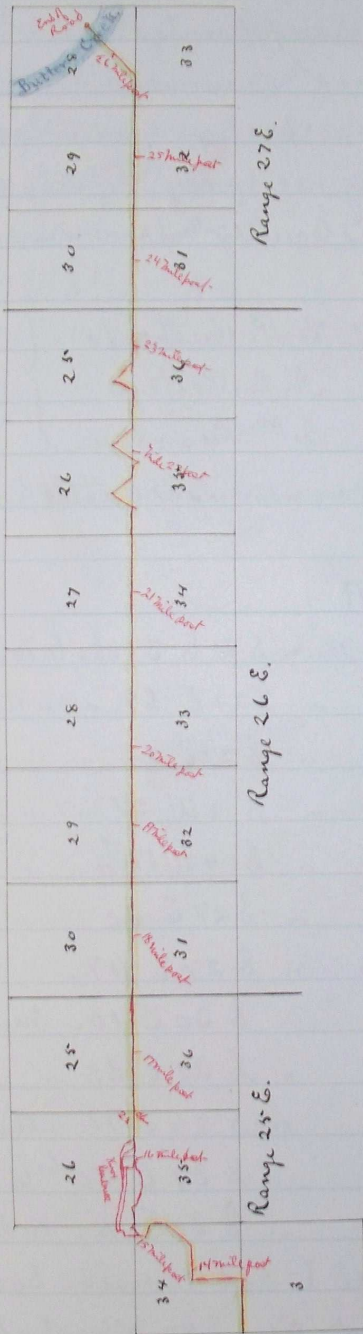 End of
Road
Butter Creek
28
26 mile post
33
29
25 mile post
32
30
24 mile post
31
Range 27 E.
25
23 mile post
36
26
Mile 22 post
35
27
21 mile post
34
28
20 mile post
33
29
19 mile post
32
30
18 mile post
31
Range 26 E.
25
17 mile post
36
26
16 mile post
35
Range 25 E.
15 mile post
34
14 mile post
3